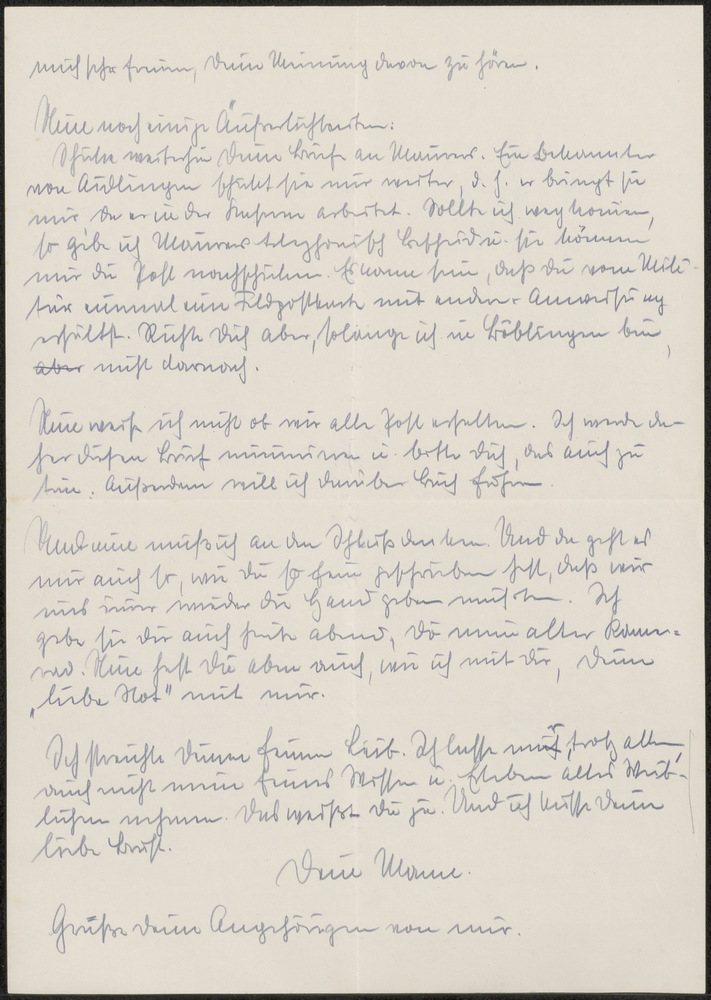 mich sehr freuen, Deine Meinung davon zu hören.
Nun noch einige Äußerlichkeiten:
Schicke weiterhin Deine Briefe an Maurers. Ein Bekannter
von Aidlingen schickt sie mir weiter, d. h. er bringt sie
mir da er in der Kaserne arbeitet. Sollte ich wegkommen,
so gebe ich Maurers telephonisch Bescheid u. sie können
mir die Post nachschicken. Es kann sein, daß Du vom Mili-
tär einmal eine Feldpostkarte mit anderer Anweisung
erhältst. Richte Dich aber, solange ich in Böblingen bin,
aber nicht darnach.
Nun weiß ich nicht ob wir alle Post erhalten. Ich werde da-
her diesen Brief numerieren u. bitte Dich, das auch zu
tun. Außerdem will ich darüber Buch führen.
Und nun muß ich an den Schluß denken. Und da geht es
mir auch so, wie Du so fein geschrieben hast, daß wir
uns immer wieder die Hand geben möchten. Ich
gebe sie Dir auch heute abend, Du mein alter Kame-
rad. Nun hast Du aber auch, wie ich mit Dir, Deine
„liebe Not" mit mir.
Ich streichle Deinen feinen Leib. Ich lasse mir, trotz allem,
auch nicht mein feines Wissen u. Erleben alles Weib-
lichen nehmen. Das weißt Du ja. Und ich küsse Deine
liebe Brust.
Dein Mann.
Grüße Deine Angehörigen von mir.